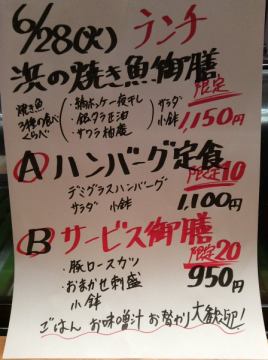 6/28(火) ランチ
浜の焼き魚御膳
限定
焼き魚
3種の食べ
くらべ
・縞ホッケ一夜干し
・銀ダラ正油
・サワラ柚庵
サラダ
小鉢
1,150円
Aハンバーグ定食
限定10
デミグラスハンバーグ
サラダ 小鉢
1,100円
Bサービス御膳
限定20
・豚ロースカツ
・おまかせ刺盛
小鉢
950円
ごはん お味噌汁 お替わり大歓迎!